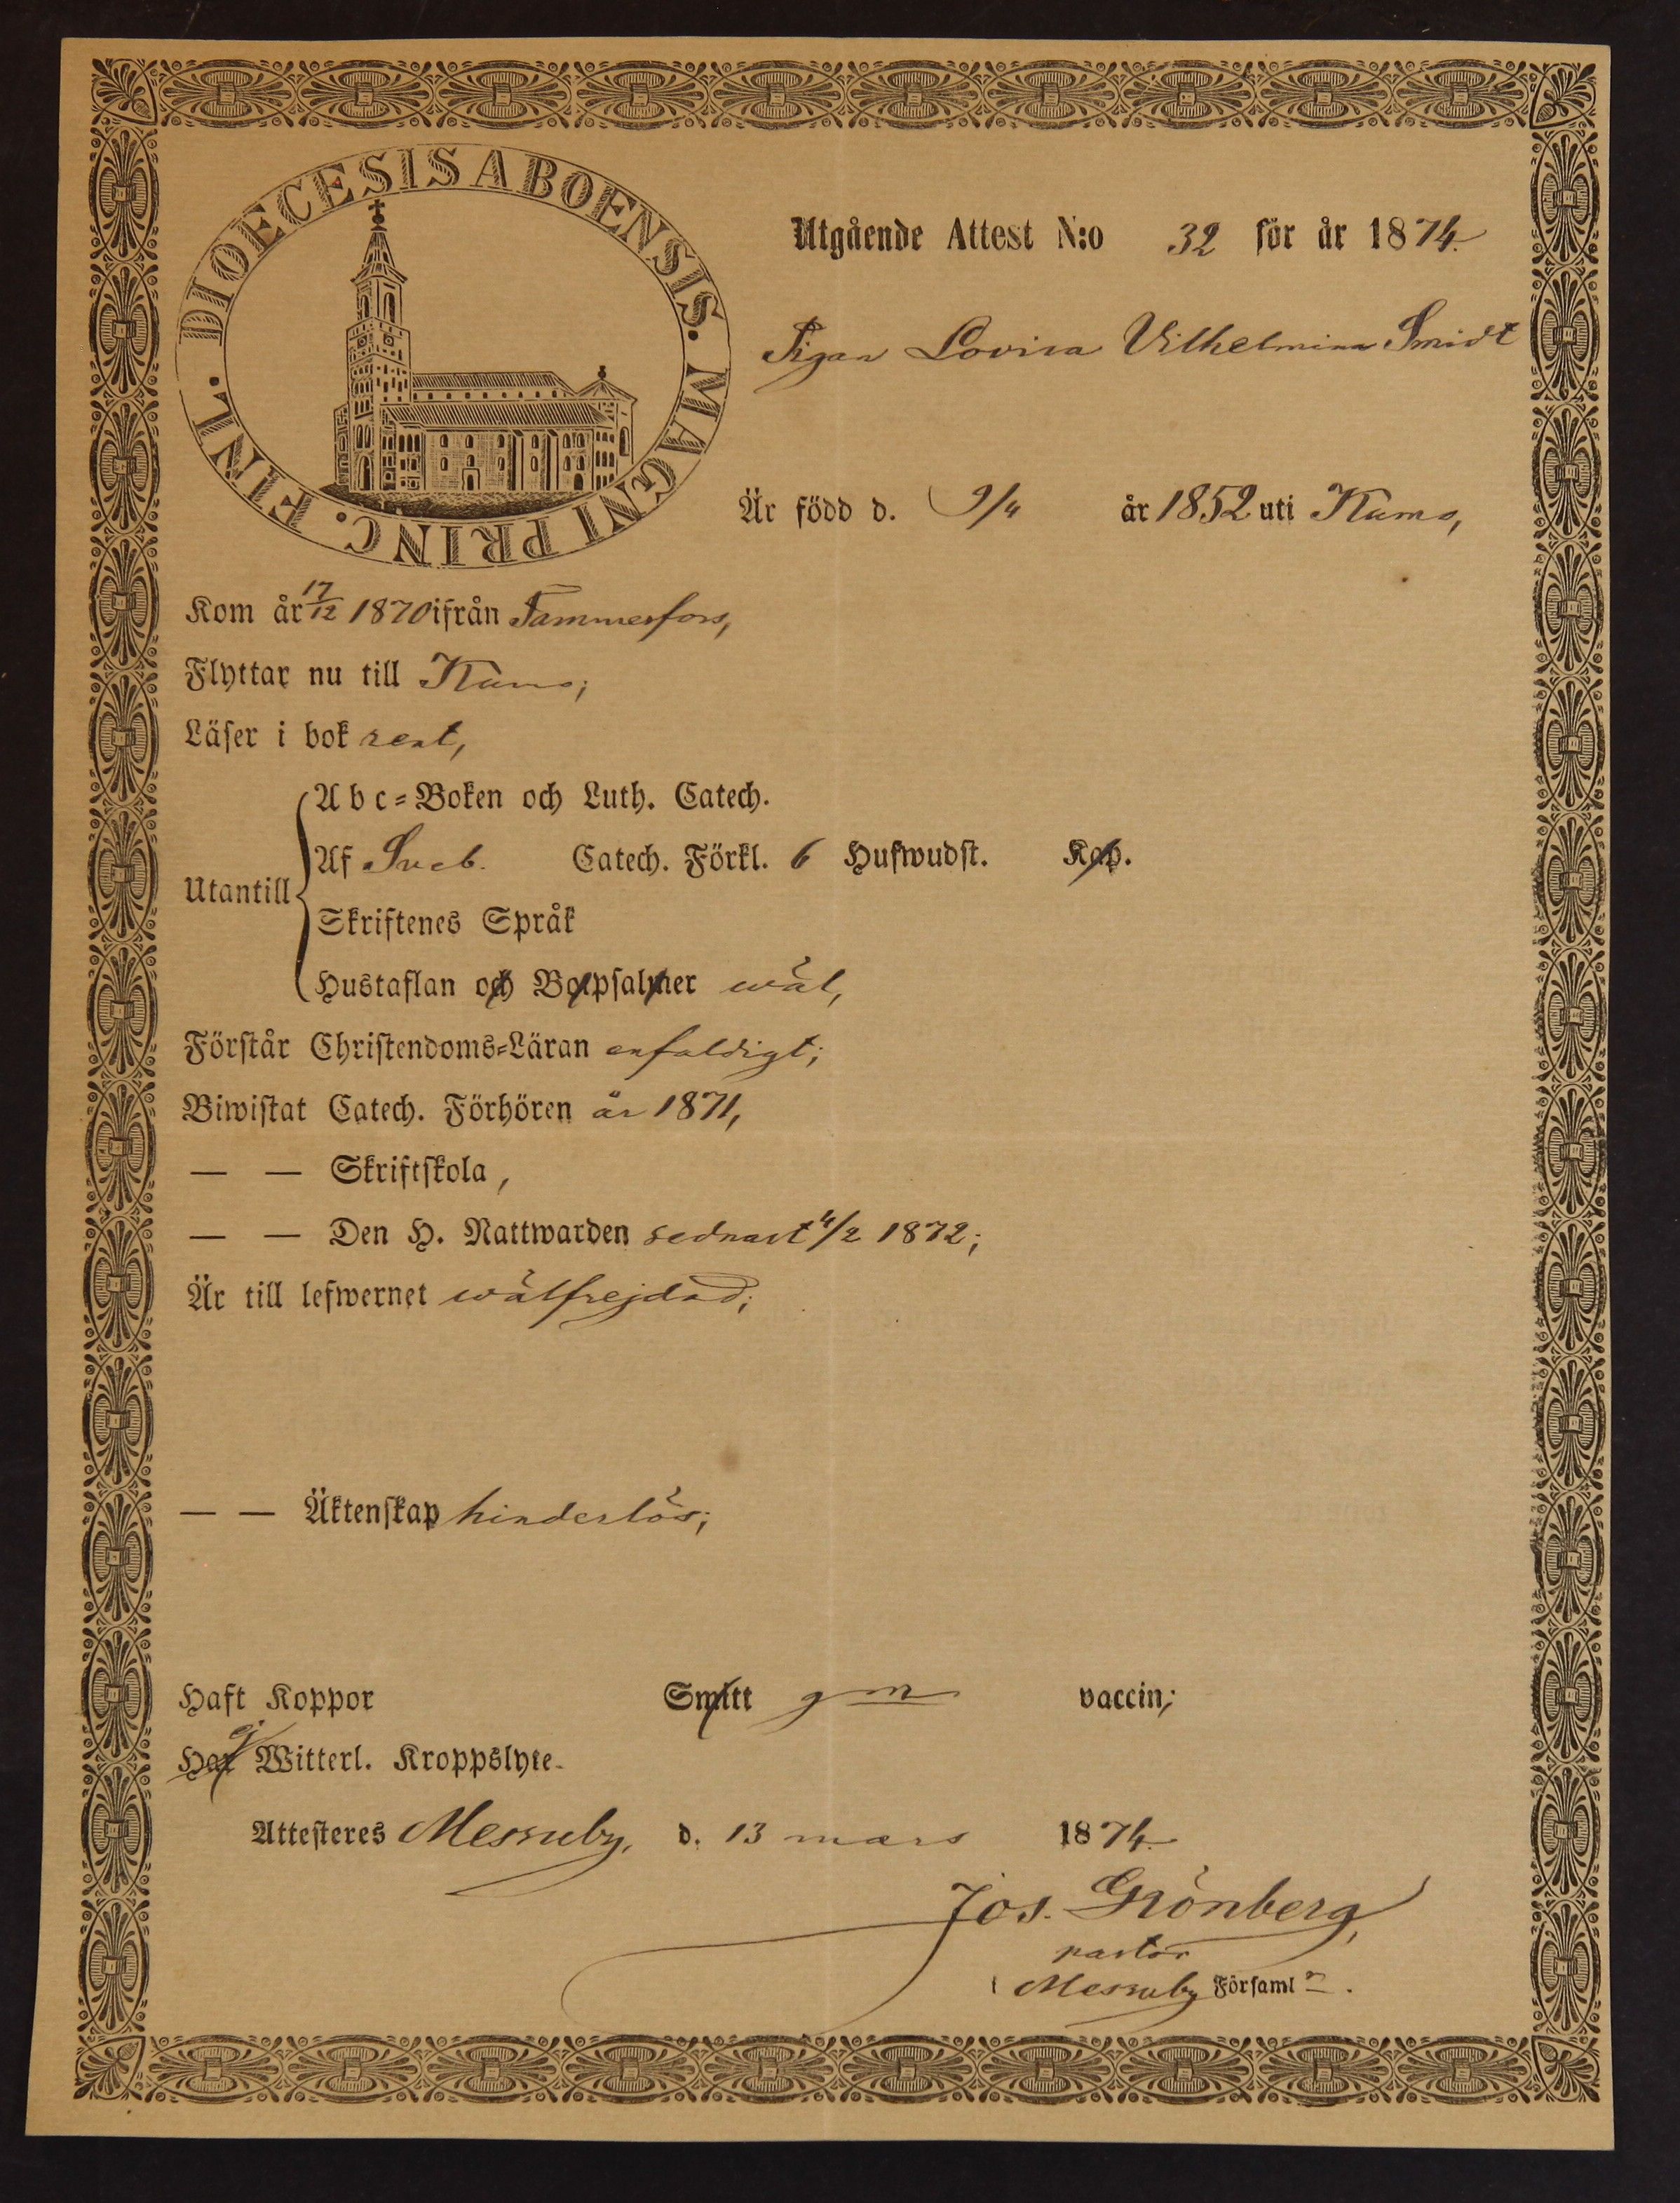 DIOECESIS ABOENSIS. MAGNI PRINC. FINL.
Utgående Attest N:o 32 för år 1874.
Pigan Lovisa Vilhelmina Smidt
Är född d. 9/4 år 1852 uti Kumo,
Kom år 17/12 1870 ifrån Tammerfors,
Flyttar nu till Kumo;
Läser i bok rent,
Utantill
Abc-Boken och Luth. Catech.
Af Sveb. Catech. Förkl. 6 Hufwudst. Kap.
Skriftenes Språk
Hustaflan och Botpsalmer wäl,
Förstår Christendoms-Läran enfaldigt;
Biwistat Catech. Förhören år 1871,
— — Skriftskola,
— — Den H. Nattwarden sednast 4/2 1872;
Är till lefwernet wälfrejdad;
— — Äktenskap hinderlös;
Haft Koppor Smitt gm vaccin;
Har ej Witterl. Kroppslyte.
Attesteres Messuby, d. 13 mars 1874.
Jos. Grönberg,
pastor
i Messuby Församl n.